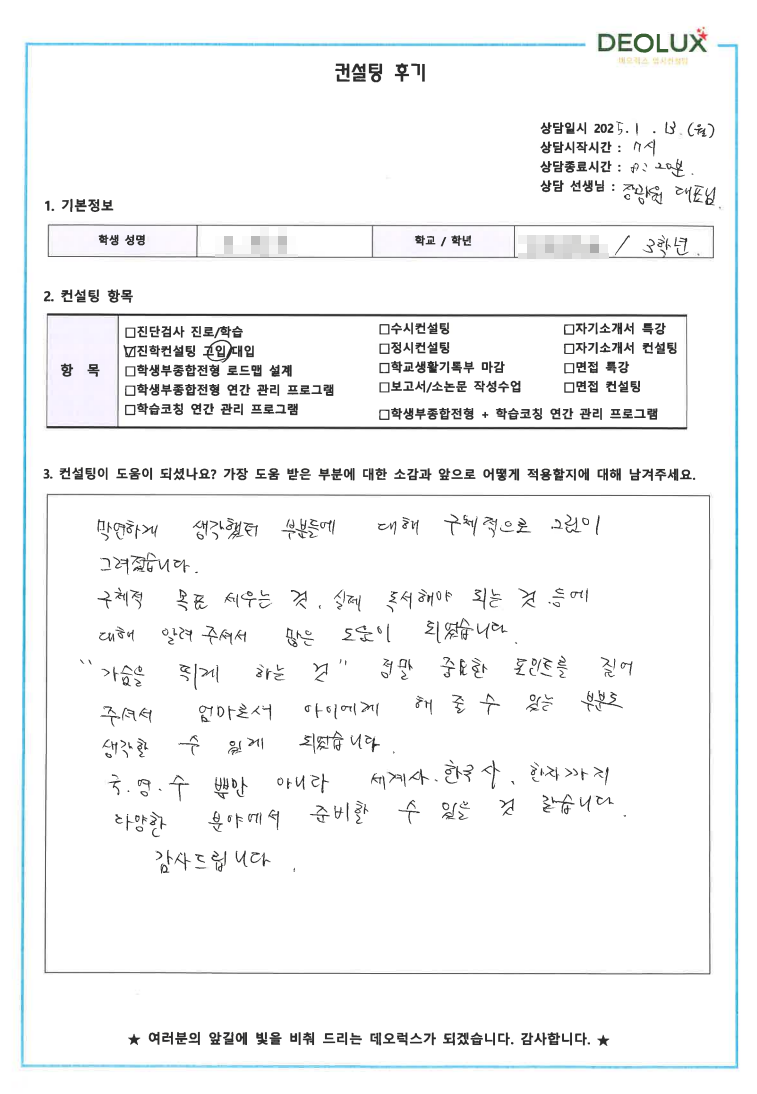 DEOLUX
데오럭스 입시컨설팅
컨설팅 후기
상담일시 2025. 1 . 13. (월)
상담시작시간 : 7시
상담종료시간 : 8: 20분.
상담 선생님 : 장광원 대표님.
1. 기본정보
학생 성명 학교 / 학년 / 3학년.
2. 컨설팅 항목
항 목
□진단검사 진로/학습 □수시컨설팅 □자기소개서 특강
☑진학컨설팅 고입/대입 □정시컨설팅 □자기소개서 컨설팅
□학생부종합전형 로드맵 설계 □학교생활기록부 마감 □면접 특강
□학생부종합전형 연간 관리 프로그램 □보고서/소논문 작성수업 □면접 컨설팅
□학습코칭 연간 관리 프로그램 □학생부종합전형 + 학습코칭 연간 관리 프로그램
3. 컨설팅이 도움이 되셨나요? 가장 도움 받은 부분에 대한 소감과 앞으로 어떻게 적용할지에 대해 남겨주세요.
막연하게 생각했던 부분들에 대해 구체적으로 그림이
그려졌습니다.
구체적 목표 세우는 것, 실제 독서해야 되는 것 등에
대해 알려 주셔서 많은 도움이 되었습니다.
"가슴을 뛰게 하는 것" 정말 중요한 포인트를 짚어
주셔서 엄마로서 아이에게 해 줄 수 있는 부분도
생각할 수 있게 되었습니다.
국.영.수 뿐만 아니라 세계사.한국사, 한자까지
다양한 분야에서 준비할 수 있는 것 같습니다.
감사드립니다.
★ 여러분의 앞길에 빛을 비춰 드리는 데오럭스가 되겠습니다. 감사합니다. ★